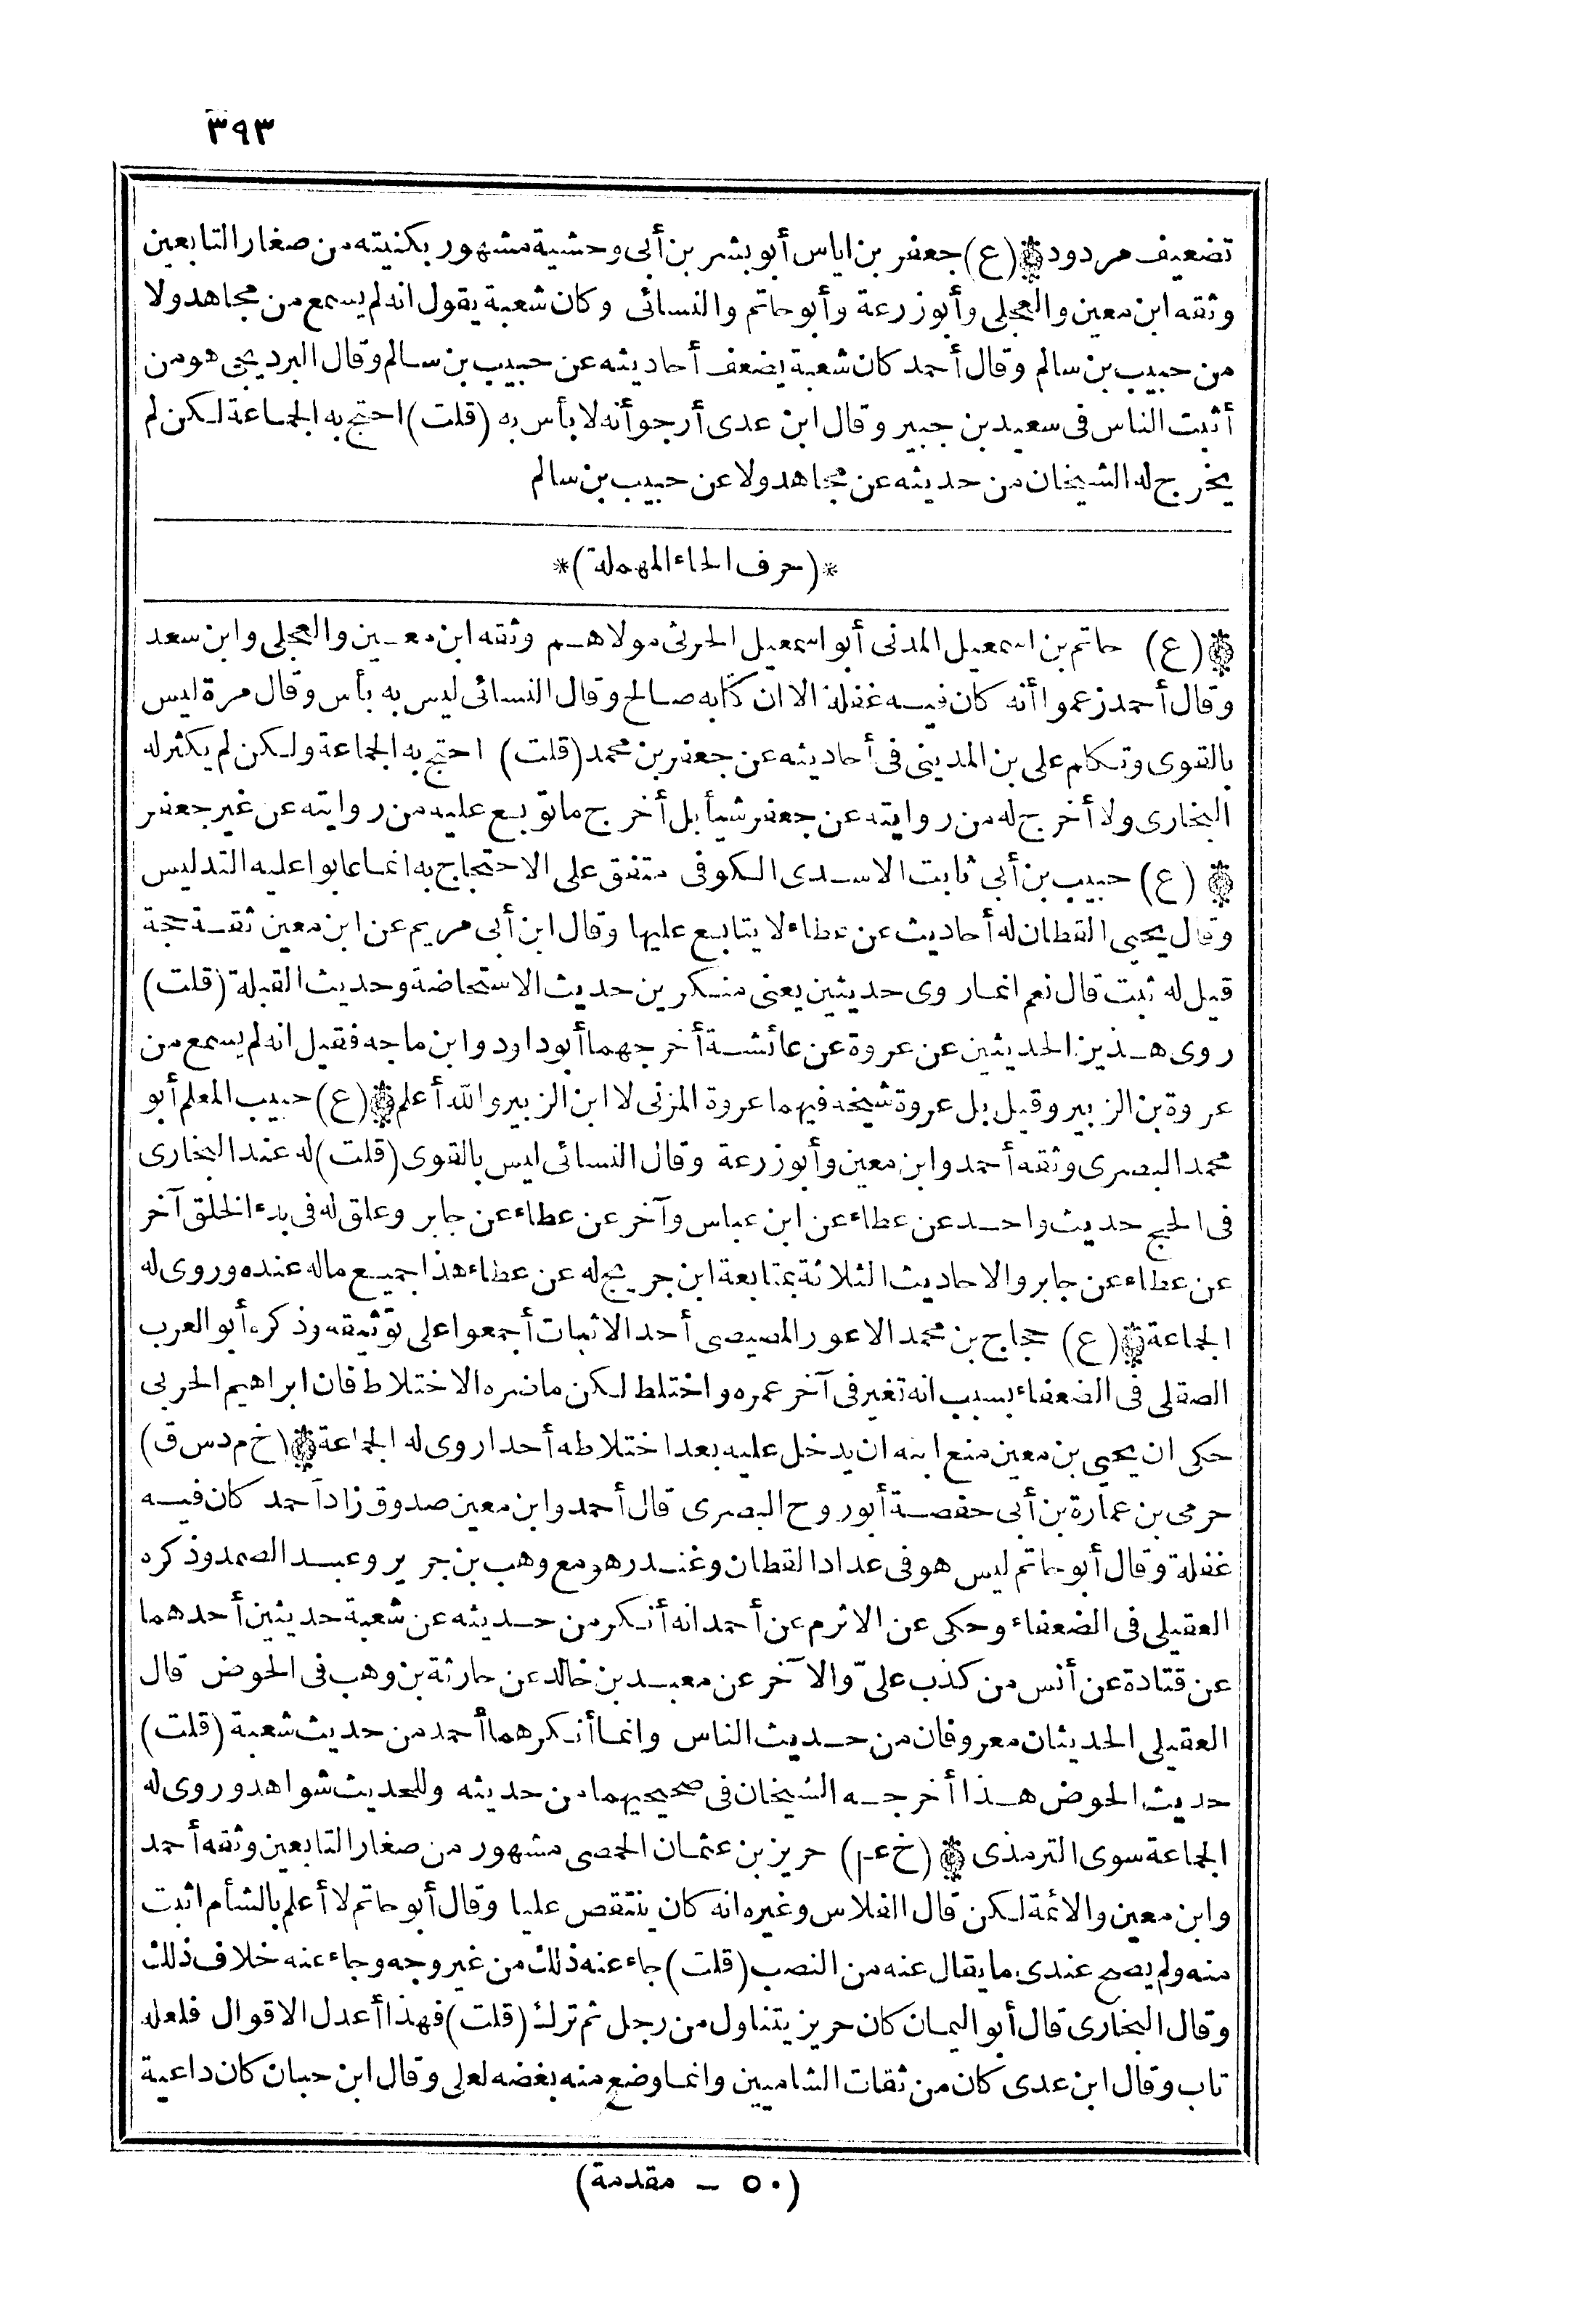 ٣٩٣
تضعيف مردود (ع) جعفر بن اياس أبو بشر بن أبى وحشية مشهور بكنيته من صغار التابعين
وثقه ابن معين والعجلى وأبو زرعة وأبو حاتم والنسائى وكان شعبة يقول انه لم يسمع من مجاهد ولا
من حبيب بن سالم وقال أحمد كان شعبة يضعف أحاديثه عن حبيب بن سالم وقال البرديجى هو من
أثبت الناس فى سعيد بن جبير وقال ابن عدى أرجو أنه لا بأس به (قلت) احتج به الجماعة لكن لم
يخرج له الشيخان من حديثه عن مجاهد ولا عن حبيب بن سالم
*(حرف الحاء المهملة)*
(ع) حاتم بن اسمعيل المدنى أبو اسمعيل الحرثى مولاهم وثقه ابن معين والعجلى وابن سعد
وقال أحمد زعموا أنه كان فيه غفلة الا ان كتابه صالح وقال النسائى ليس به بأس وقال مرة ليس
بالقوى وتكلم على بن المدينى فى أحاديثه عن جعفر بن محمد (قلت) احتج به الجماعة ولكن لم يكثر له
البخارى ولا أخرج له من روايته عن جعفر شيأ بل أخرج ما توبع عليه من روايته عن غير جعفر
(ع) حبيب بن أبى ثابت الاسدى الكوفى متفق على الاحتجاج به انما عابوا عليه التدليس
وقال يحيى القطان له أحاديث عن عطاء لا يتابع عليها وقال ابن أبى مريم عن ابن معين ثقة حجة
قيل له ثبت قال نعم انما روى حديثين يعنى منكرين حديث الاستحاضة وحديث القبلة (قلت)
روى هذين الحديثين عن عروة عن عائشة أخرجهما أبو داود وابن ماجه فقيل انه لم يسمع من
عروة بن الزبير وقيل بل عروة شيخه فيهما عروة المزنى لا ابن الزبير والله أعلم (ع) حبيب المعلم أبو
محمد البصرى وثقه أحمد وابن معين وأبو زرعة وقال النسائى ليس بالقوى (قلت) له عند البخارى
فى الحج حديث واحد عن عطاء عن ابن عباس وآخر عن عطاء عن جابر وعلق له فى بدء الخلق آخر
عن عطاء عن جابر والاحاديث الثلاثة بمتابعة ابن جريج له عن عطاء هذا جميع ماله عنده وروى له
الجماعة (ع) حجاج بن محمد الاعور المصيصى أحد الاثبات أجمعوا على توثيقه وذكره أبو العرب
الصقلى فى الضعفاء بسبب انه تغير فى آخر عمره واختلط لكن ما ضره الاختلاط فان ابراهيم الحربى
حكى ان يحيى بن معين منع ابنه ان يدخل عليه بعد اختلاطه أحدا روى له الجماعة (خ م د س ق)
حرمى بن عمارة بن أبى حفصة أبو روح البصرى قال أحمد وابن معين صدوق زاد أحمد كان فيه
غفلة وقال أبو حاتم ليس هو فى عداد القطان وغندر هو مع وهب بن جرير وعبد الصمد وذكره
العقيلى فى الضعفاء وحكى عن الاثرم عن أحمد انه أنكر من حديثه عن شعبة حديثين أحدهما
عن قتادة عن أنس من كذب علىّ والآخر عن معبد بن خالد عن حارثة بن وهب فى الحوض قال
العقيلى الحديثان معروفان من حديث الناس وانما أنكرهما أحمد من حديث شعبة (قلت)
حديث الحوض هذا أخرجه الشيخان فى صحيحيهما من حديثه وللحديث شواهد وروى له
الجماعة سوى الترمذى (خ عم) حريز بن عثمان الحمصى مشهور من صغار التابعين وثقه أحمد
وابن معين والأئمة لكن قال الفلاس وغيره انه كان ينتقص عليا وقال أبو حاتم لا أعلم بالشأم اثبت
منه ولم يصح عندى ما يقال عنه من النصب (قلت) جاء عنه ذلك من غير وجه وجاء عنه خلاف ذلك
وقال البخارى قال أبو اليمان كان حريز يتناول من رجل ثم ترك (قلت) فهذا أعدل الاقوال فلعله
تاب وقال ابن عدى كان من ثقات الشاميين وانما وضع منه بغضه لعلى وقال ابن حبان كان داعية
(٥٠ ــ مقدمة)